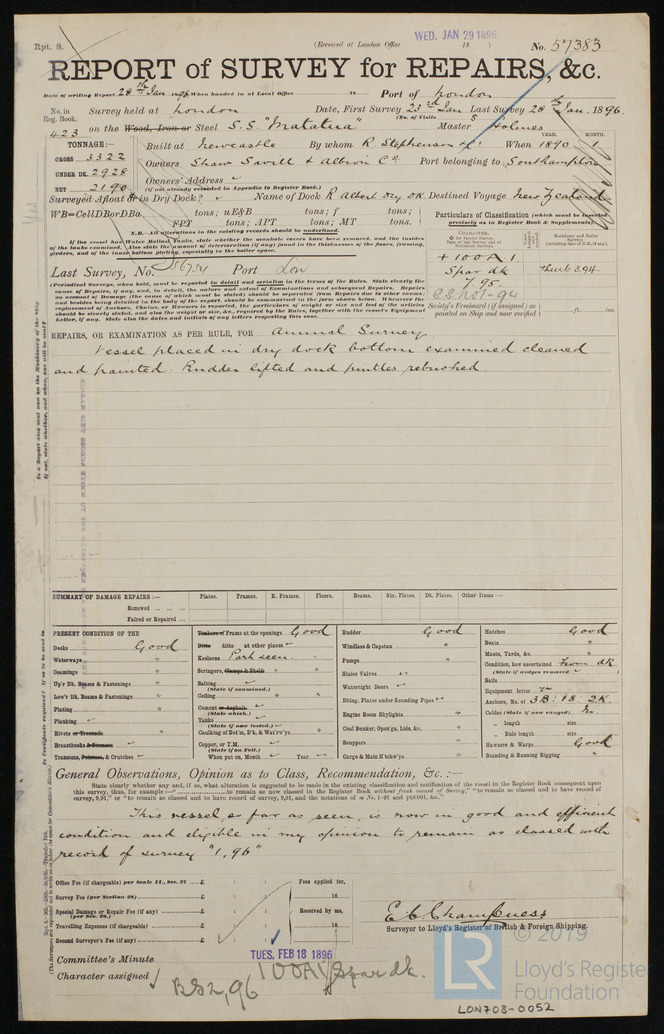 Rpt. 8.
(Received at London Office WED. JAN 29 1896 18 )
No. 57383
REPORT of SURVEY for REPAIRS, &c.
Date of writing Report 28th Jan 1896 When handed in at Local Office 18 Port of London
No. in Reg. Book. Survey held at London Date, First Survey 23rd Jan Last Survey 28th Jan. 1896
(No. of Visits 5
423 on the Wood, Iron or Steel S.S. "Matatua" Master Holmes
TONNAGE:—
GROSS 3322
UNDER DK. 2928
NET 2190
Built at Newcastle By whom R. Stephenson & Co When 1890 YEAR. 1 MONTH.
Owners Shaw Savill & Albion Co Port belonging to Southampton
Owners' Address
(if not already recorded in Appendix to Register Book.)
Surveyed Afloat or in Dry Dock? Name of Dock R Albert Dry Dk. Destined Voyage New Zealand
WB=CellDBorDBa tons; uE&B tons; f tons;
FPT tons; APT tons; MT tons.
N.B.—All alterations in the existing records should be underlined.
If the vessel has Water Ballast Tanks, state whether the manhole covers have been removed, and the insides of the tanks examined. Also state the amount of deterioration (if any) found in the thicknesses of the floors, framing, girders, and of the inner bottom plating, especially in the boiler space.
Particulars of Classification (which must be inserted precisely as in Register Book & Supplement).
+ 100A1
Spar dk
7.95
Society's Freeboard (if assigned) as painted on Ship and now verified ft. ins.
Last Survey, No. 56751 Port Lon
(Periodical Surveys, when held, must be reported in detail and seriatim in the terms of the Rules. State clearly the cause of Repairs, if any, and, in detail, the nature and extent of Examinations and subsequent Repairs. Repairs on account of Damage (the cause of which must be stated) should be separated from Repairs due to other causes; and besides being detailed in the body of the report, should be summarised in the form shown below. Whenever the replacement of Anchors, Chains, or Hawsers is reported, the particulars of weight or size and test of the articles should be clearly stated, and also the weight or size, &c., required by the Rules, together with the vessel's Equipment Letter, if any. State also the dates and initials of any letters respecting this case.
REPAIRS, OR EXAMINATION AS PER RULE, FOR Annual Survey
Vessel placed in dry dock bottom examined cleaned
and painted. Rudder lifted and pintles rebushed
SUMMARY OF DAMAGE REPAIRS:— Plates. Frames. R. Frames. Floors. Beams. Str. Plates. Dk. Plates. Other Items:—
Renewed ... ... ...
Faired or Repaired ...
PRESENT CONDITION OF THE
Decks Good
Waterways "
Coamings "
Up'r Dk. Beams & Fastenings "
Low'r Dk. Beams & Fastenings "
Plating "
Planking
Rivets or Treenails "
Breasthooks & Sternson
Transoms, Pointers, & Crutches
Timbers or Frame at the openings Good
Ditto ditto at other places
Keelsons Part seen.
Stringers, Clamps & Shelfs "
Salting
(State if examined.)
Ceiling "
Cement or Asphalt.
(State which.)
Tanks
(State if now tested.)
Caulking of Bot'm, D'k, & Wat'rw'ys "
Copper, or Y.M.
(State if on Felt.)
When put on, Month Year
Rudder Good
Windlass & Capstan "
Pumps "
Sluice Valves
Watertight Doors
Dblng. Plates under Sounding Pipes
Engine Room Skylights "
Coal Bunker, Open'gs, Lids, &c. "
Scuppers "
Cargo & Main Hatchw'ys "
Hatches Good
Boats "
Masts, Yards, &c. "
Condition, how ascertained From dk
(State if wedges removed )
Sails
Equipment letter
Anchors, No. of 3B. 1S. 2K.
Cables (State if now ranged)
" length size
" Rule length size
Hawsers & Warps Good
Standing & Running Rigging "
General Observations, Opinion as to Class, Recommendation, &c.:—
State clearly whether any, and if so, what alteration is suggested to be made in the existing classification and notification of the vessel in the Register Book consequent upon
This vessel, so far as seen, is now in good and efficient
condition and eligible in my opinion to remain as classed with
record of survey "1,96"
Office Fee (if chargeable) per Scale II., Sec. 27 ... £ : :
Survey Fee (per Section 28) ... £ : :
Special Damage or Repair Fee (if any) ... £ : :
(per Sec. 28.)
Travelling Expenses (if chargeable) ... £ : :
Second Surveyor's Fee (if any) ... £ : :
Fees applied for,
18
Received by me,
18
E. C. Champness
Surveyor to Lloyd's Register of British & Foreign Shipping.
Committee's Minute TUES. FEB 18 1896
Character assigned 100A1 Spar dk.
BS2,96
LR
© 2019
Lloyd's Register
Foundation
LON708-0052